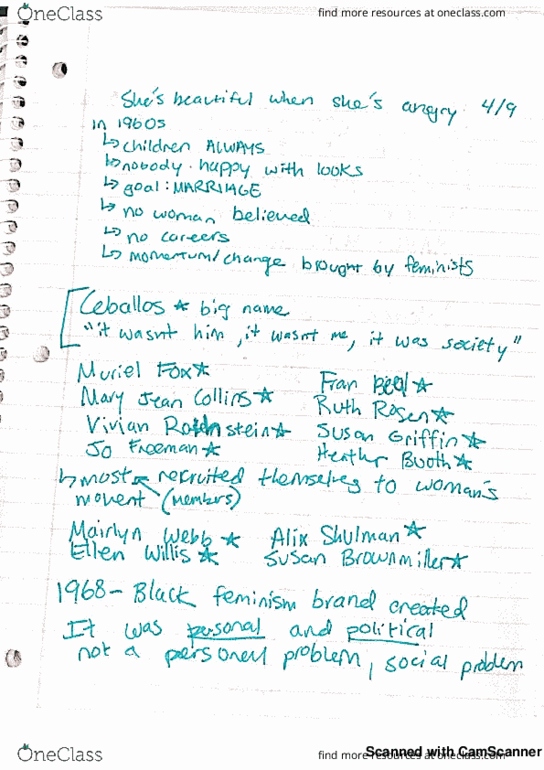 OneClass find more resources at oneclass.com
She's beautiful when she's angry 4/9
in 1960s
↳ children ALWAYS
↳ nobody happy with looks
↳ goal: MARRIAGE
↳ no woman believed
↳ no careers
↳ momentum/change brought by feminists
Ceballos ★ big name
"it wasnt him, it wasnt me, it was society"
Muriel Fox ☆ Fran Beal ☆
Mary Jean Collins ☆ Ruth Rosen ☆
Vivian Rothstein ☆ Susan Griffin ☆
Jo Freeman ☆ Heather Booth ☆
↳ most recruited themselves to woman's
movent (members)
Mairlyn Webb ☆ Alix Shulman ☆
Ellen Willis ☆ Susan Brownmiller ☆
1968 - Black feminism brand created
It was personal and political
not a personal problem, social problem
OneClass find more resources at oneclass.com
Scanned with CamScanner